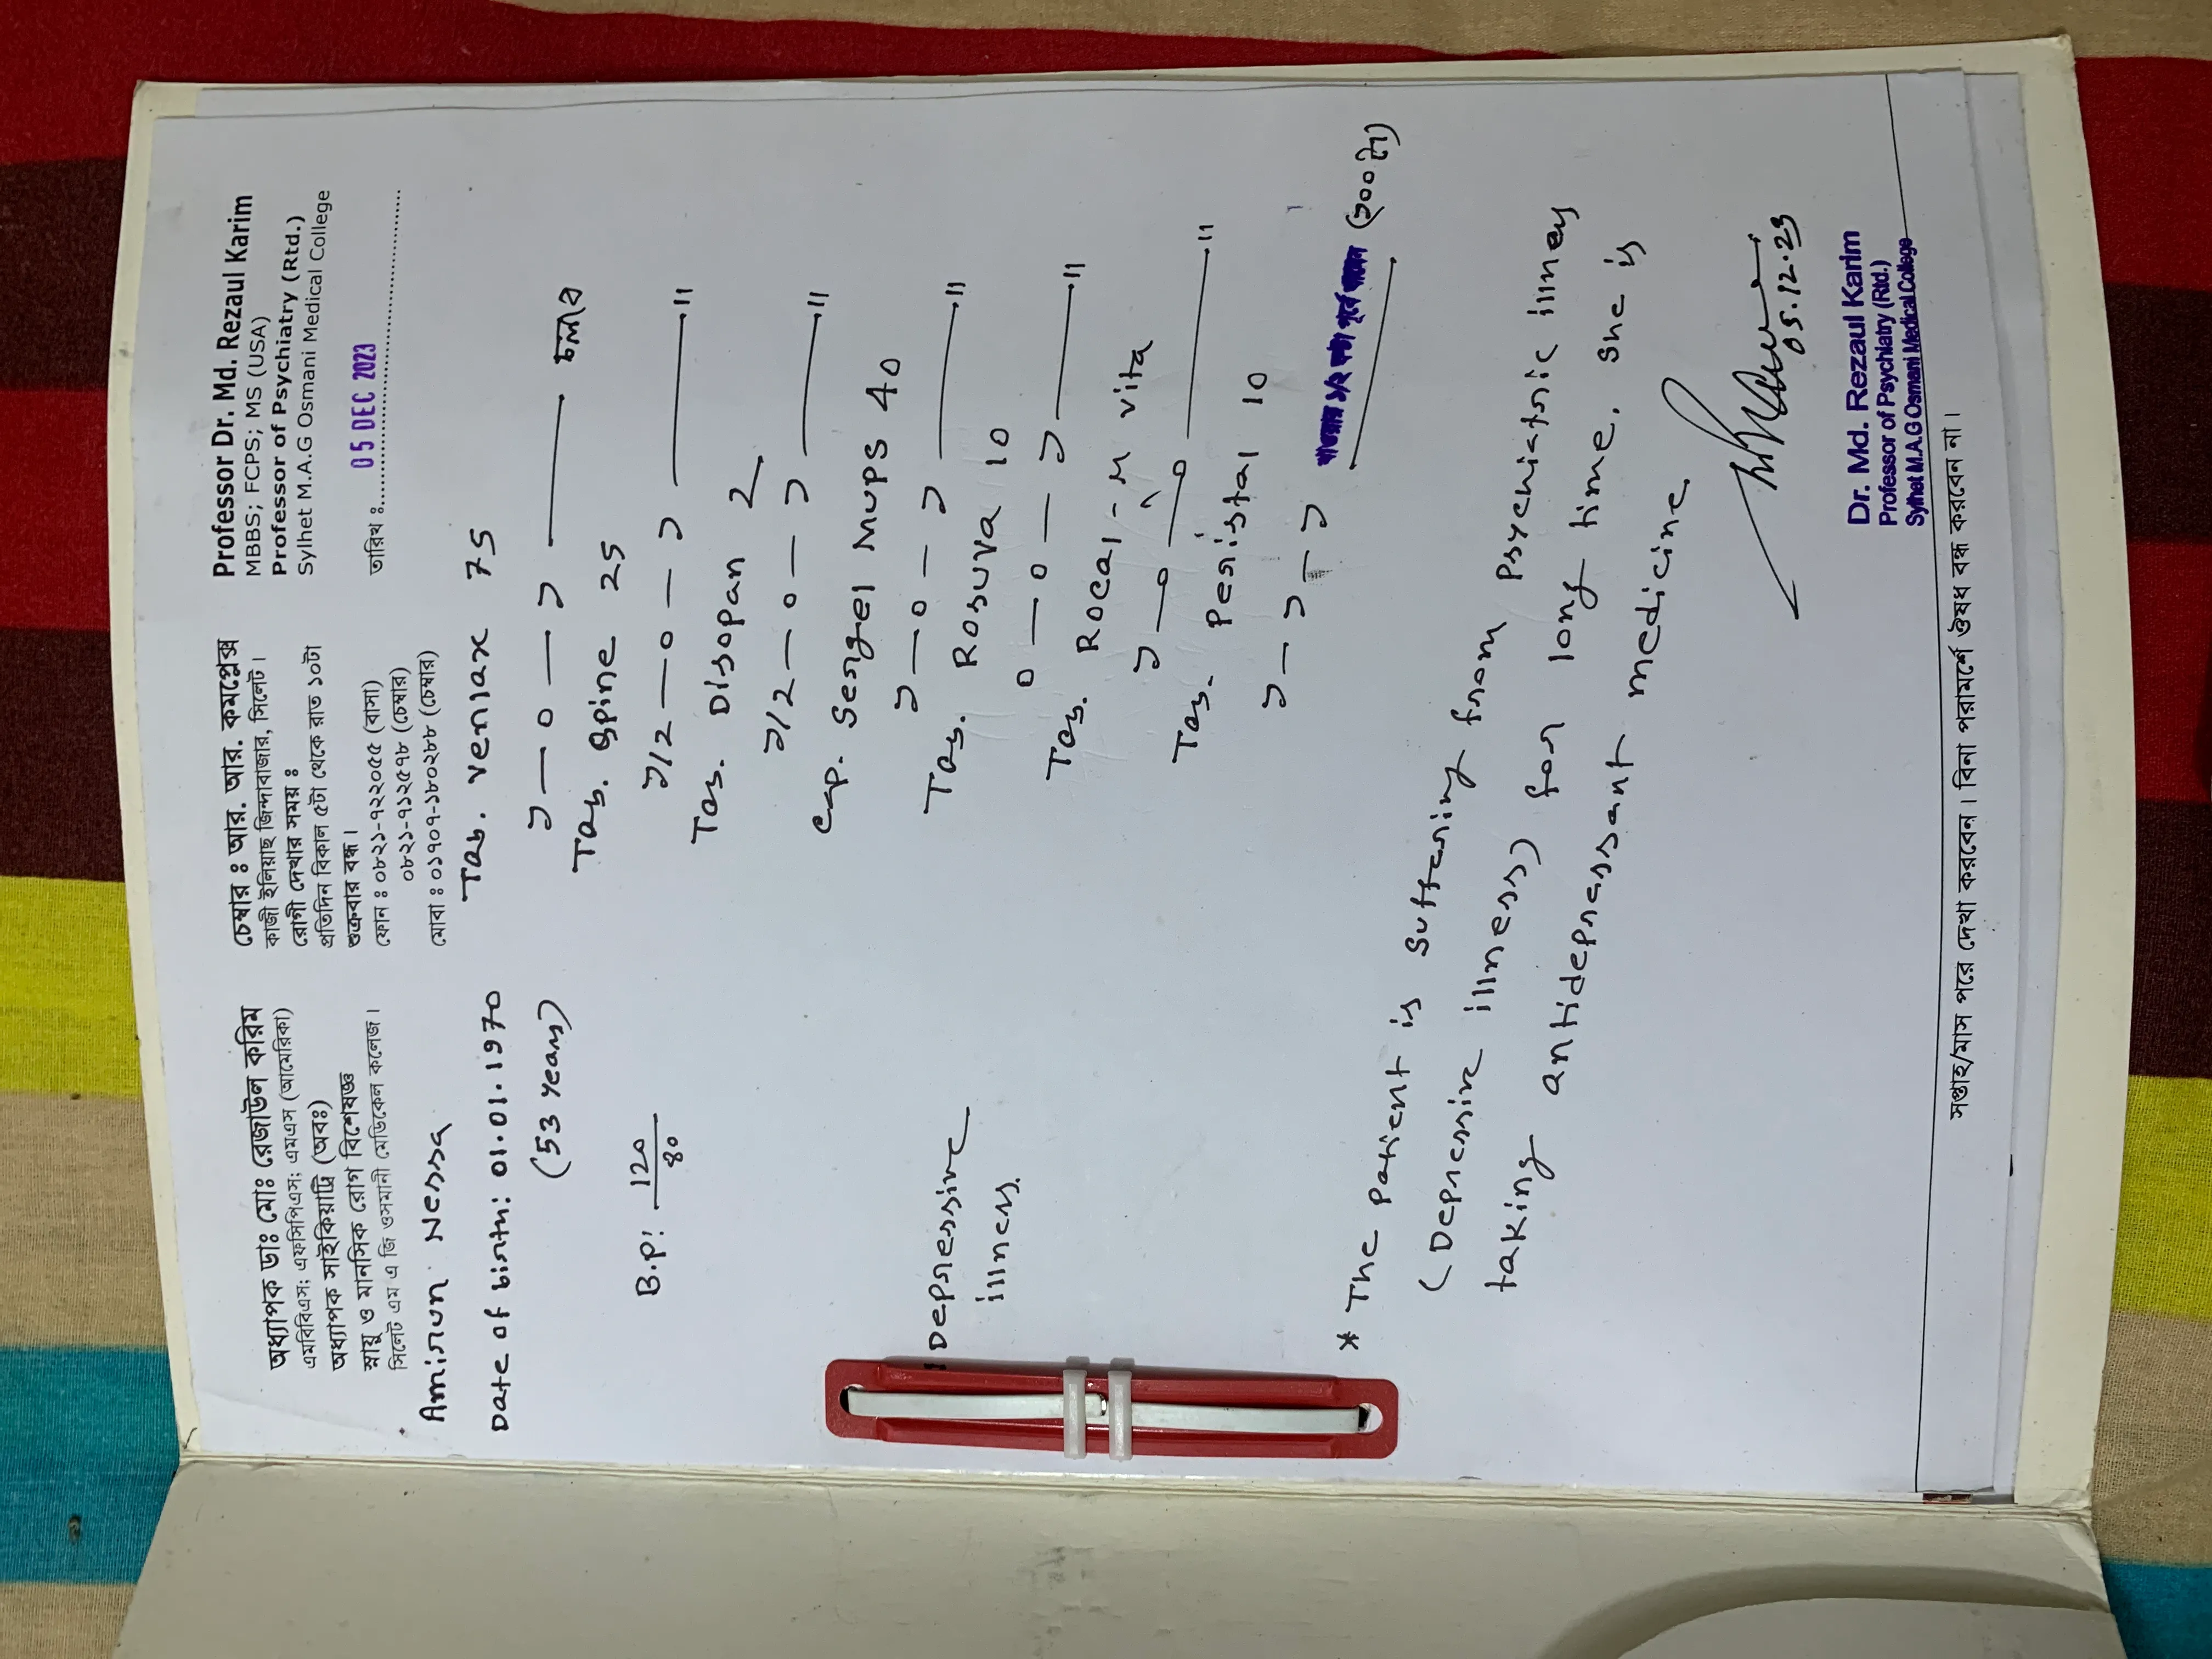 অধ্যাপক ডাঃ মোঃ রেজাউল করিম
এমবিবিএস; এফসিপিএস; এমএস (আমেরিকা)
অধ্যাপক সাইকিয়াট্রি (অবঃ)
স্নায়ু ও মানসিক রোগ বিশেষজ্ঞ
সিলেট এম এ জি ওসমানী মেডিকেল কলেজ।
চেম্বার ঃ আর. আর. কমপ্লেক্স
কাজী ইলিয়াছ জিন্দাবাজার, সিলেট।
রোগী দেখার সময় ঃ
প্রতিদিন বিকাল ৫টা থেকে রাত ১০টা
শুক্রবার বন্ধ।
ফোন ঃ ০৮২১-৭২২০৫৫ (বাসা)
০৮২১-৭১২৫৭৮ (চেম্বার)
মোবা ঃ ০১৭০৭-১৮০২৮৮ (চেম্বার)
Professor Dr. Md. Rezaul Karim
MBBS; FCPS; MS (USA)
Professor of Psychiatry (Rtd.)
Sylhet M.A.G Osmani Medical College
তারিখ ঃ 05 DEC 2023
Amirun Nessa
Date of birth: 01.01.1970
(53 years)
B.P: 120/80
Depressive
illness.
Tab. Venlax 75
১—০—১ —— চলবে
Tab. Qpine 25
১/২—০—১ —— "
Tab. Disopan 2
১/২—০—১ —— "
Cap. Sergel MUPS 40
১—০—১ —— "
Tab. Rosuva 10
০—০—১ —— "
Tab. Rocal-M vita
১—০—০ —— "
Tab. Peristal 10
১—১—১ খাওয়ার ১/২ ঘন্টা পূর্বে খাবেন (১০০টা)
* The patient is suffering from psychiatric illness
(Depressive illness) for long time. she is
taking antidepressant medicine
05.12.23
Dr. Md. Rezaul Karim
Professor of Psychiatry (Rtd.)
Sylhet M.A.G Osmani Medical College
সপ্তাহ/মাস পরে দেখা করবেন। বিনা পরামর্শে ঔষধ বন্ধ করবেন না।